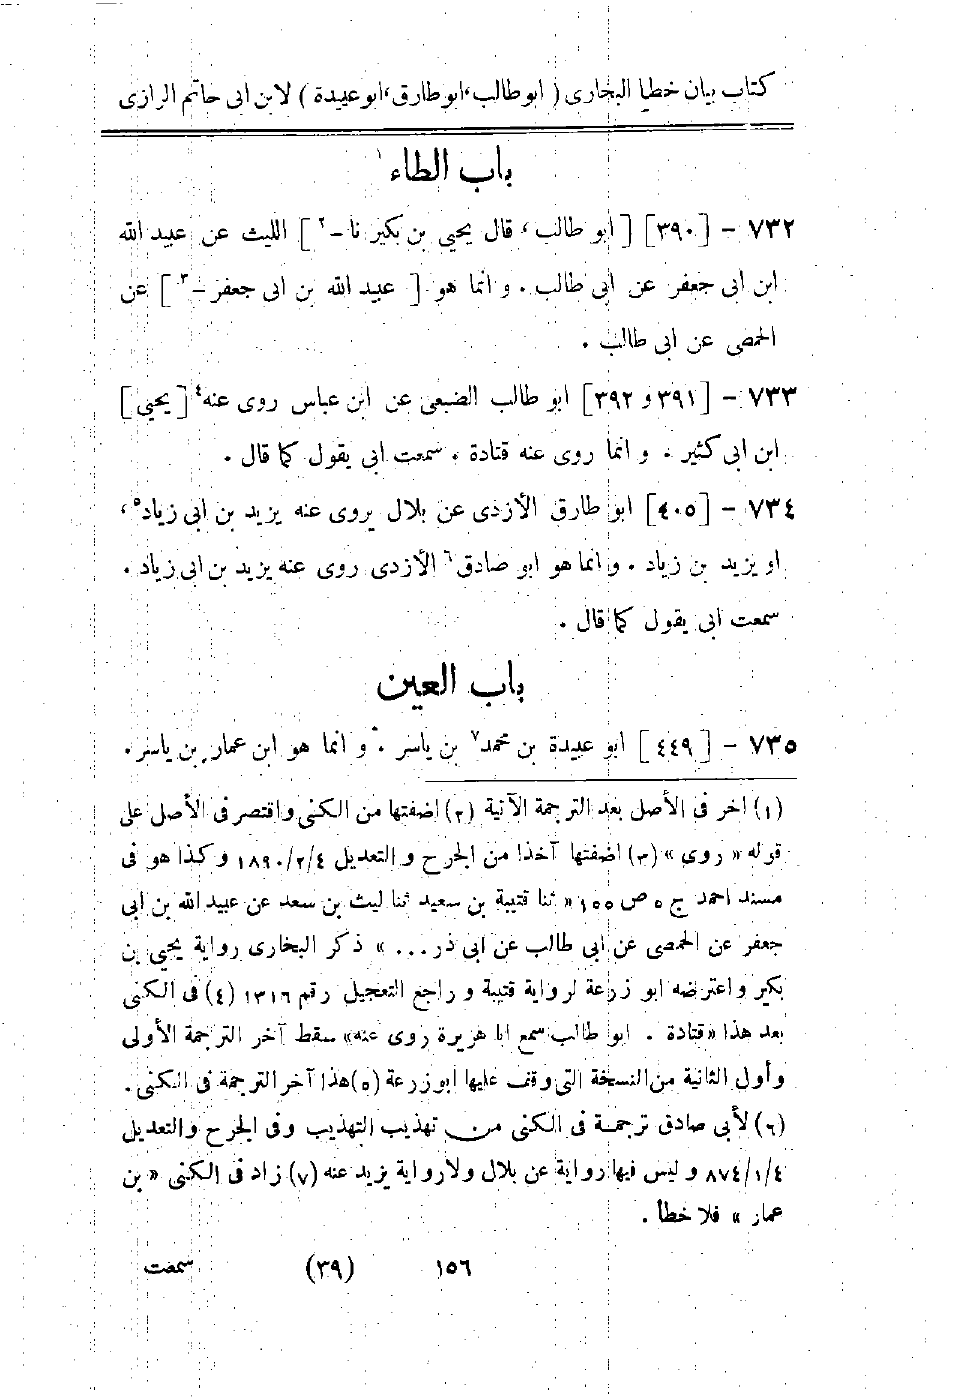 كتاب بيان خطأ البخارى ( ابو طالب، ابو طارق، ابو عبيدة ) لابن ابى حاتم الرازى
باب الطاء ١
٧٣٢ - [٣٩٠] [ ابو طالب، قال يحيى بن بكير نا -٢ ] الليث عن عبيد الله
ابن ابى جعفر عن ابى طالب . و انما هو [ عبيد الله بن ابى جعفر -٣ ] عن
الحمصى عن ابى طالب .
٧٣٣ - [٣٩١ و ٣٩٢] ابو طالب الضبعى عن ابن عباس روى عنه ٤ [ يحيى ]
ابن ابى كثير . و انما روى عنه قتادة . سمعت ابى يقول كما قال .
٧٣٤ - [٤٠٥] ابو طارق الأزدى عن بلال يروى عنه يزيد بن ابى زياد ٥،
او يزيد بن زياد . و انما هو ابو صادق ٦ الأزدى روى عنه يزيد بن ابى زياد .
سمعت ابى يقول كما قال .
باب العين
٧٣٥ - [٤٤٩] ابو عبيدة بن محمد ٧ بن ياسر . و انما هو ابن عمار بن ياسر .
(١) اخر فى الأصل بعد الترجمة الآتية (٢) اضفتها من الكنى و اقتصر فى الأصل على
قوله « روى » (٣) اضفتها آخذا من الجرح و التعديل ٤/٢/١٨٩٠ و كذا هو فى
مسند احمد ج ٥ ص ١٥٥ « ثنا قتيبة بن سعيد ثنا ليث بن سعد عن عبيد الله بن ابى
جعفر عن الحمصى عن ابى طالب عن ابى ذر ... » ذكر البخارى رواية يحيى بن
بكير و اعترضه ابو زرعة لرواية قتيبة و راجع التعجيل رقم ١٣١٦ (٤) فى الكنى
بعد هذا « قتادة . ابو طالب سمع ابا هريرة روى عنه » سقط آخر الترجمة الأولى
و أول الثانية من النسخة التى وقف عليها ابو زرعة (٥) هذا آخر الترجمة فى الكنى .
(٦) لأبى صادق ترجمة فى الكنى من تهذيب التهذيب وفى الجرح و التعديل
٤/١/٨٧٤ و ليس فيها رواية عن بلال ولا رواية يزيد عنه (٧) زاد فى الكنى « بن
عمار » فلا خطأ .
١٥٦ (٣٩) سمعت